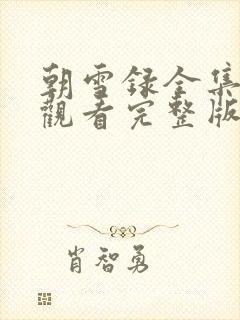 朝雪録全集
觀看完整版
肖智勇